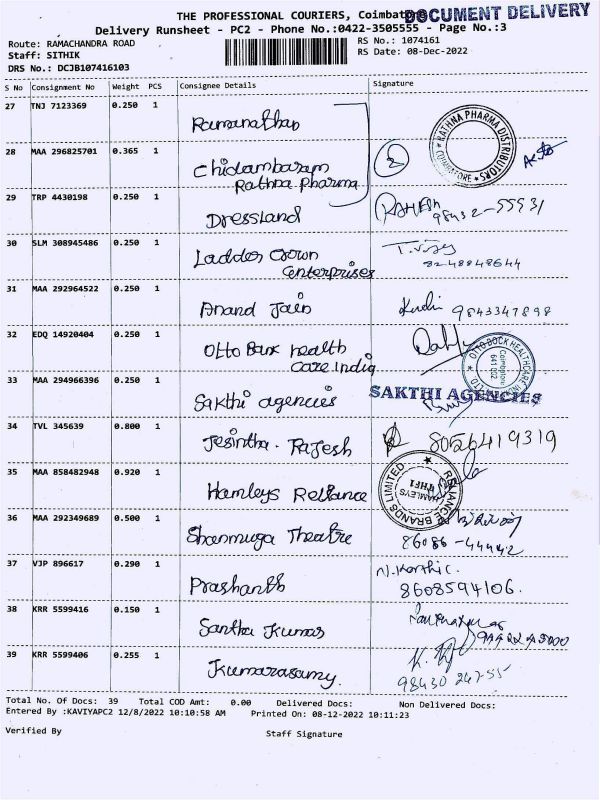 THE PROFESSIONAL COURIERS, Coimbatore
DOCUMENT DELIVERY
Delivery Runsheet - PC2 - Phone No.:0422-3505555 - Page No.:3
Route: RAMACHANDRA ROAD
RS No.: 1074161
Staff: SITHIK
RS Date: 08-Dec-2022
DRS No.: DCJB107416103
S No Consignment No Weight PCS Consignee Details Signature
27 TNJ 7123369 0.250 1
Ramanathan
RATHNA PHARMA DISTRIBUTORS
COIMBATORE
28 MAA 296825701 0.365 1
Chidambaram
Rathna Pharma
2
29 TRP 4430198 0.250 1
Dressland
98432-55931
30 SLM 308945486 0.250 1
Ladder Crown
Centerprises
T. Vijay
8248848644
31 MAA 292964522 0.250 1
Anand Jain
9843347898
32 EDQ 14920404 0.250 1
Otto Bank health
care India
OTTO BOCK HEALTHCARE IND
Coimbatore
641 002
33 MAA 294966396 0.250 1
Sakthi agencies
SAKTHI AGENCIES
34 TVL 345639 0.800 1
Jesintha. Rajesh
8056419319
35 MAA 858482948 0.920 1
Hamleys Reliance
RELIANCE BRANDS LIMITED
HAMLEYS
PHF1
36 MAA 292349689 0.500 1
Shanmuga Theatre
86086-44442
37 VJP 896617 0.290 1
Prashanth
N. Karthic.
8608594106.
38 KRR 5599416 0.150 1
Santha Kumar
39 KRR 5599406 0.255 1
Kumarasamy.
98430 24755
Total No. Of Docs: 39 Total COD Amt: 0.00 Delivered Docs: Non Delivered Docs:
Entered By :KAVIYAPC2 12/8/2022 10:10:58 AM Printed On: 08-12-2022 10:11:23
Verified By
Staff Signature